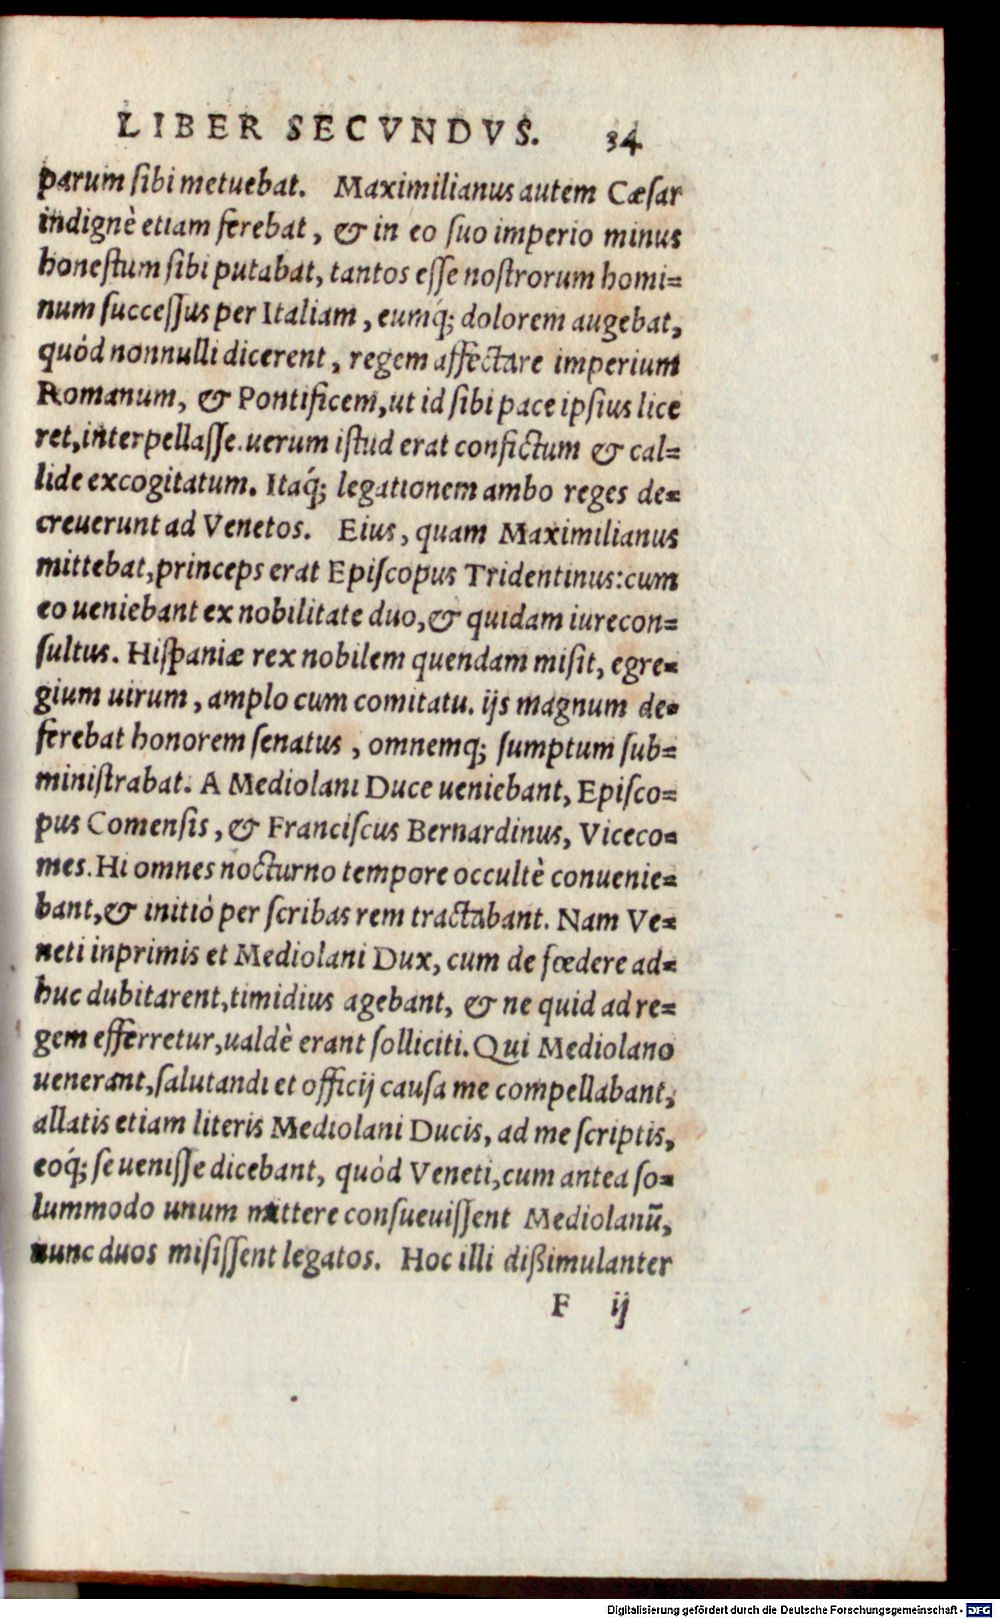 LIBER SECVNDVS. 34
parum sibi metuebat. Maximilianus autem Cæsar
indignè etiam ferebat, & in eo suo imperio minus
honestum sibi putabat, tantos esse nostrorum homi=
num successus per Italiam, eumq́; dolorem augebat,
quòd nonnulli dicerent, regem affectare imperium
Romanum, & Pontificem, ut id sibi pace ipsius lice
ret, interpellasse. uerum istud erat confictum & cal=
lide excogitatum. Itaq́; legationem ambo reges de=
creuerunt ad Venetos. Eius, quam Maximilianus
mittebat, princeps erat Episcopus Tridentinus: cum
eo ueniebant ex nobilitate duo, & quidam iurecon=
sultus. Hispaniæ rex nobilem quendam misit, egre=
gium uirum, amplo cum comitatu. ijs magnum de=
ferebat honorem senatus, omnemq; sumptum sub=
ministrabat. A Mediolani Duce ueniebant, Episco=
pus Comensis, & Franciscus Bernardinus, Viceco=
mes. Hi omnes nocturno tempore occultè conuenie=
bant, & initiò per scribas rem tractabant. Nam Ve=
neti inprimis et Mediolani Dux, cum de fœdere ad=
huc dubitarent, timidius agebant, & ne quid ad re=
gem efferretur, ualdè erant solliciti. Qui Mediolano
uenerant, salutandi et officij causa me compellabant,
allatis etiam literis Mediolani Ducis, ad me scriptis,
eoq́; se uenisse dicebant, quòd Veneti, cum antea so=
lummodo unum mittere consueuissent Mediolanū,
nunc duos misissent legatos. Hoc illi dißimulanter
F ij
Digitalisierung gefördert durch die Deutsche Forschungsgemeinschaft - DFG